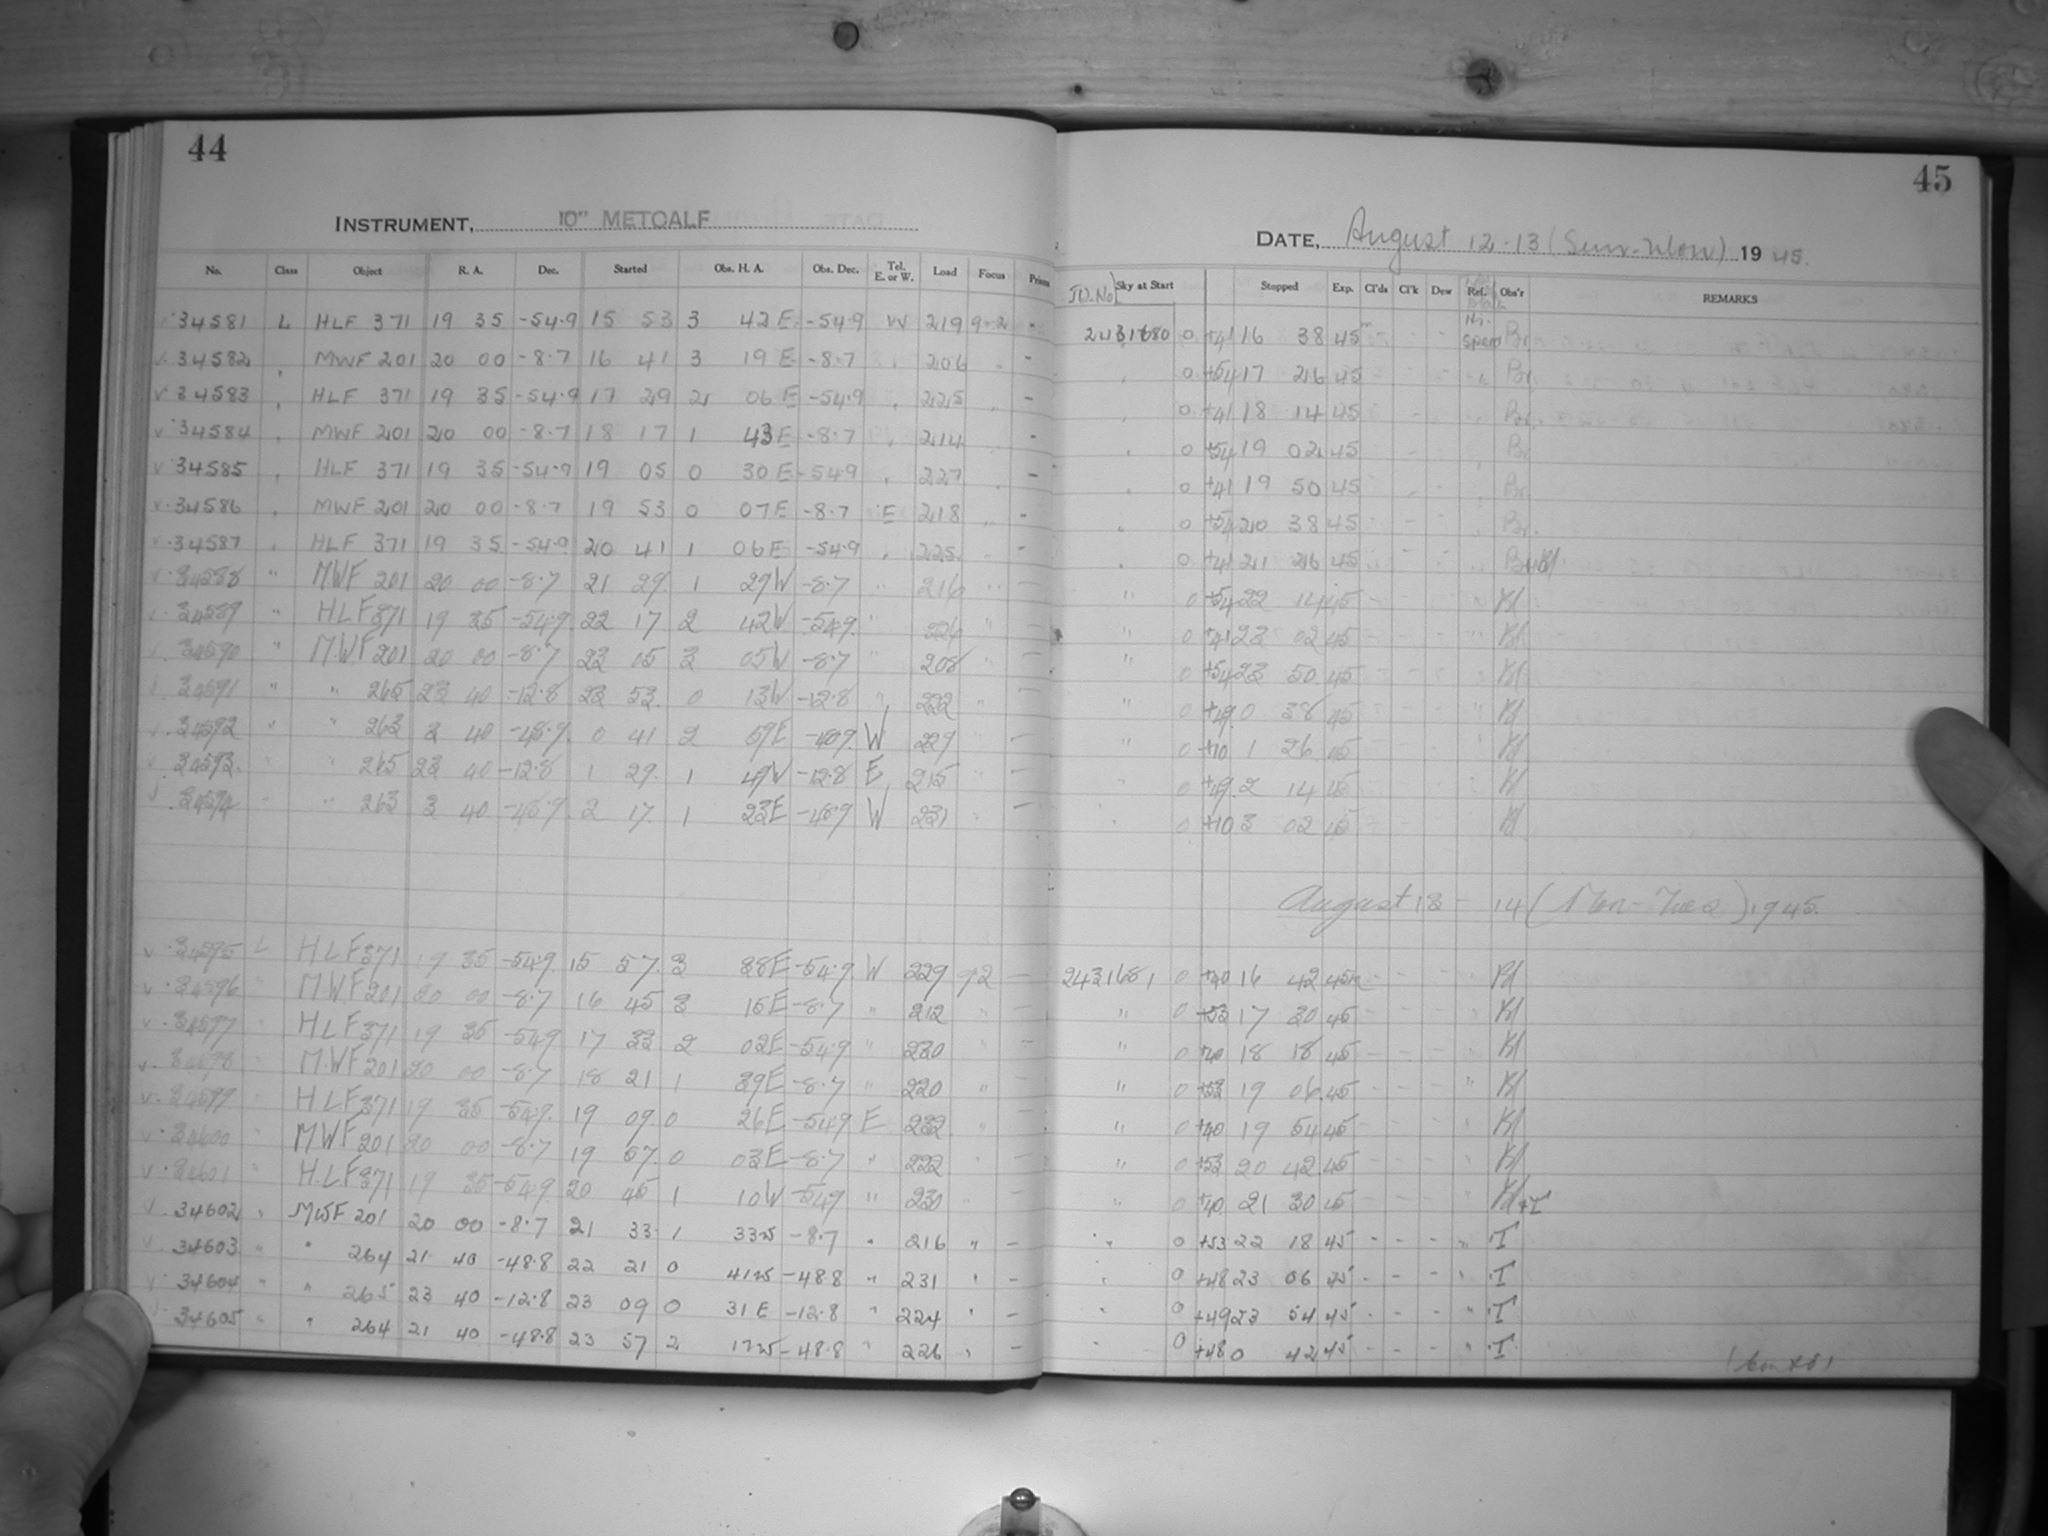 44
INSTRUMENT, 10" METCALF
No. Class Object R. A. Dec. Started Obs. H. A. Obs. Dec. Tel. E. or W. Load Focus Prism
34581 L HLF 371 19 35 -54.9 15 53 3 42 E -54.9 W 219 9.2 -
34582 " MWF 201 20 00 -8.7 16 41 3 19 E -8.7 " 206 " -
34583 " HLF 371 19 35 -54.9 17 29 2 06 E -54.9 " 225 " -
34584 " MWF 201 20 00 -8.7 18 17 1 43 E -8.7 " 214 " -
34585 " HLF 371 19 35 -54.9 19 05 0 30 E -54.9 " 227 " -
34586 " MWF 201 20 00 -8.7 19 53 0 07 E -8.7 E 218 " -
34587 " HLF 371 19 35 -54.9 20 41 1 06 E -54.9 " 225 " -
34588 " MWF 201 20 00 -8.7 21 29 1 29 W -8.7 " 216 " -
34589 " HLF 371 19 35 -54.9 22 17 2 42 W -54.9 " 226 " -
34590 " MWF 201 20 00 -8.7 23 05 3 05 W -8.7 " 208 " -
34591 " " 265 23 40 -12.8 23 53 0 13 W -12.8 " 222 " -
34592 " " 263 3 40 -48.9 0 41 2 59 E -48.9 W 229 " -
34593 " " 265 23 40 -12.8 1 29 1 49 W -12.8 E 215 " -
34594 " " 263 3 40 -48.9 2 17 1 23 E -48.9 W 231 " -
34595 L HLF 371 19 35 -54.9 15 57 3 38 E -54.9 W 229 92 -
34596 " MWF 201 20 00 -8.7 16 45 3 15 E -8.7 " 212 " -
34597 " HLF 371 19 35 -54.9 17 33 2 02 E -54.9 " 230 " -
34598 " MWF 201 20 00 -8.7 18 21 1 39 E -8.7 " 220 " -
34599 " HLF 371 19 35 -54.9 19 09 0 26 E -54.9 E 232 " -
34600 " MWF 201 20 00 -8.7 19 57 0 03 E -8.7 " 222 " -
34601 " HLF 371 19 35 -54.9 20 45 1 10 W -54.9 " 230 " -
34602 " MWF 201 20 00 -8.7 21 33 1 33 W -8.7 " 216 " -
34603 " " 264 21 40 -48.8 22 21 0 41 W -48.8 " 231 " -
34604 " " 265 23 40 -12.8 23 09 0 31 E -12.8 " 224 " -
34605 " " 264 21 40 -48.8 23 57 2 17 W -48.8 " 226 " -
45
DATE, August 12-13 (Sun-Mon) 1945.
J.D. No Sky at Start Stopped Exp. Cl'ds Cl'k Dew Ref. Obs'r REMARKS
2431680 0 +41 16 38 45m - - Br
" 0 +54 17 26 45 - - - " Br
" 0 +41 18 14 45 - - - " Br
" 0 +54 19 02 45 - - - " Br
" 0 +41 19 50 45 - - - " Br
" 0 +54 20 38 45 - - - " Br.
" 0 +41 21 26 45 - - - " Br+Kl
" 0 +54 22 14 45 - - - " Kl
" 0 +41 23 02 45 - - - " Kl
" 0 +54 23 50 45 - - - " Kl
" 0 +49 0 38 45 - - - " Kl
" 0 +10 1 26 45 - - - " Kl
" 0 +49 2 14 45 - - - " Kl
" 0 +10 3 02 45 - - - Kl
August 13 - 14 (Mon-Tues) 1945.
2431681 0 +40 16 42 45m - - - Kl
" 0 +53 17 30 45 - - - " Kl
" 0 +40 18 18 45 - - - " Kl
" 0 +53 19 06 45 - - - " Kl
" 0 +40 19 54 45 - - - " Kl
" 0 +53 20 42 45 - - - " Kl
" 0 +40 21 30 45 - - - " Kl+I
" 0 +53 22 18 45 - - - " I
" 0 +48 23 06 45 - - - " I
" 0 +49 23 54 45 - - - " I
" 0 +48 0 42 45 - - - " I